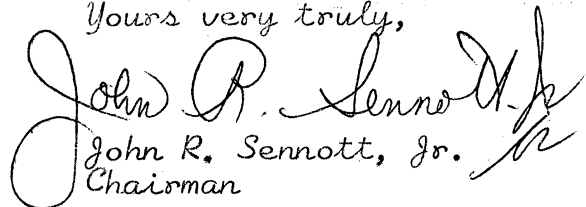 Yours very truly,
John R. Sennott, Jr.
John R. Sennott, Jr.
Chairman